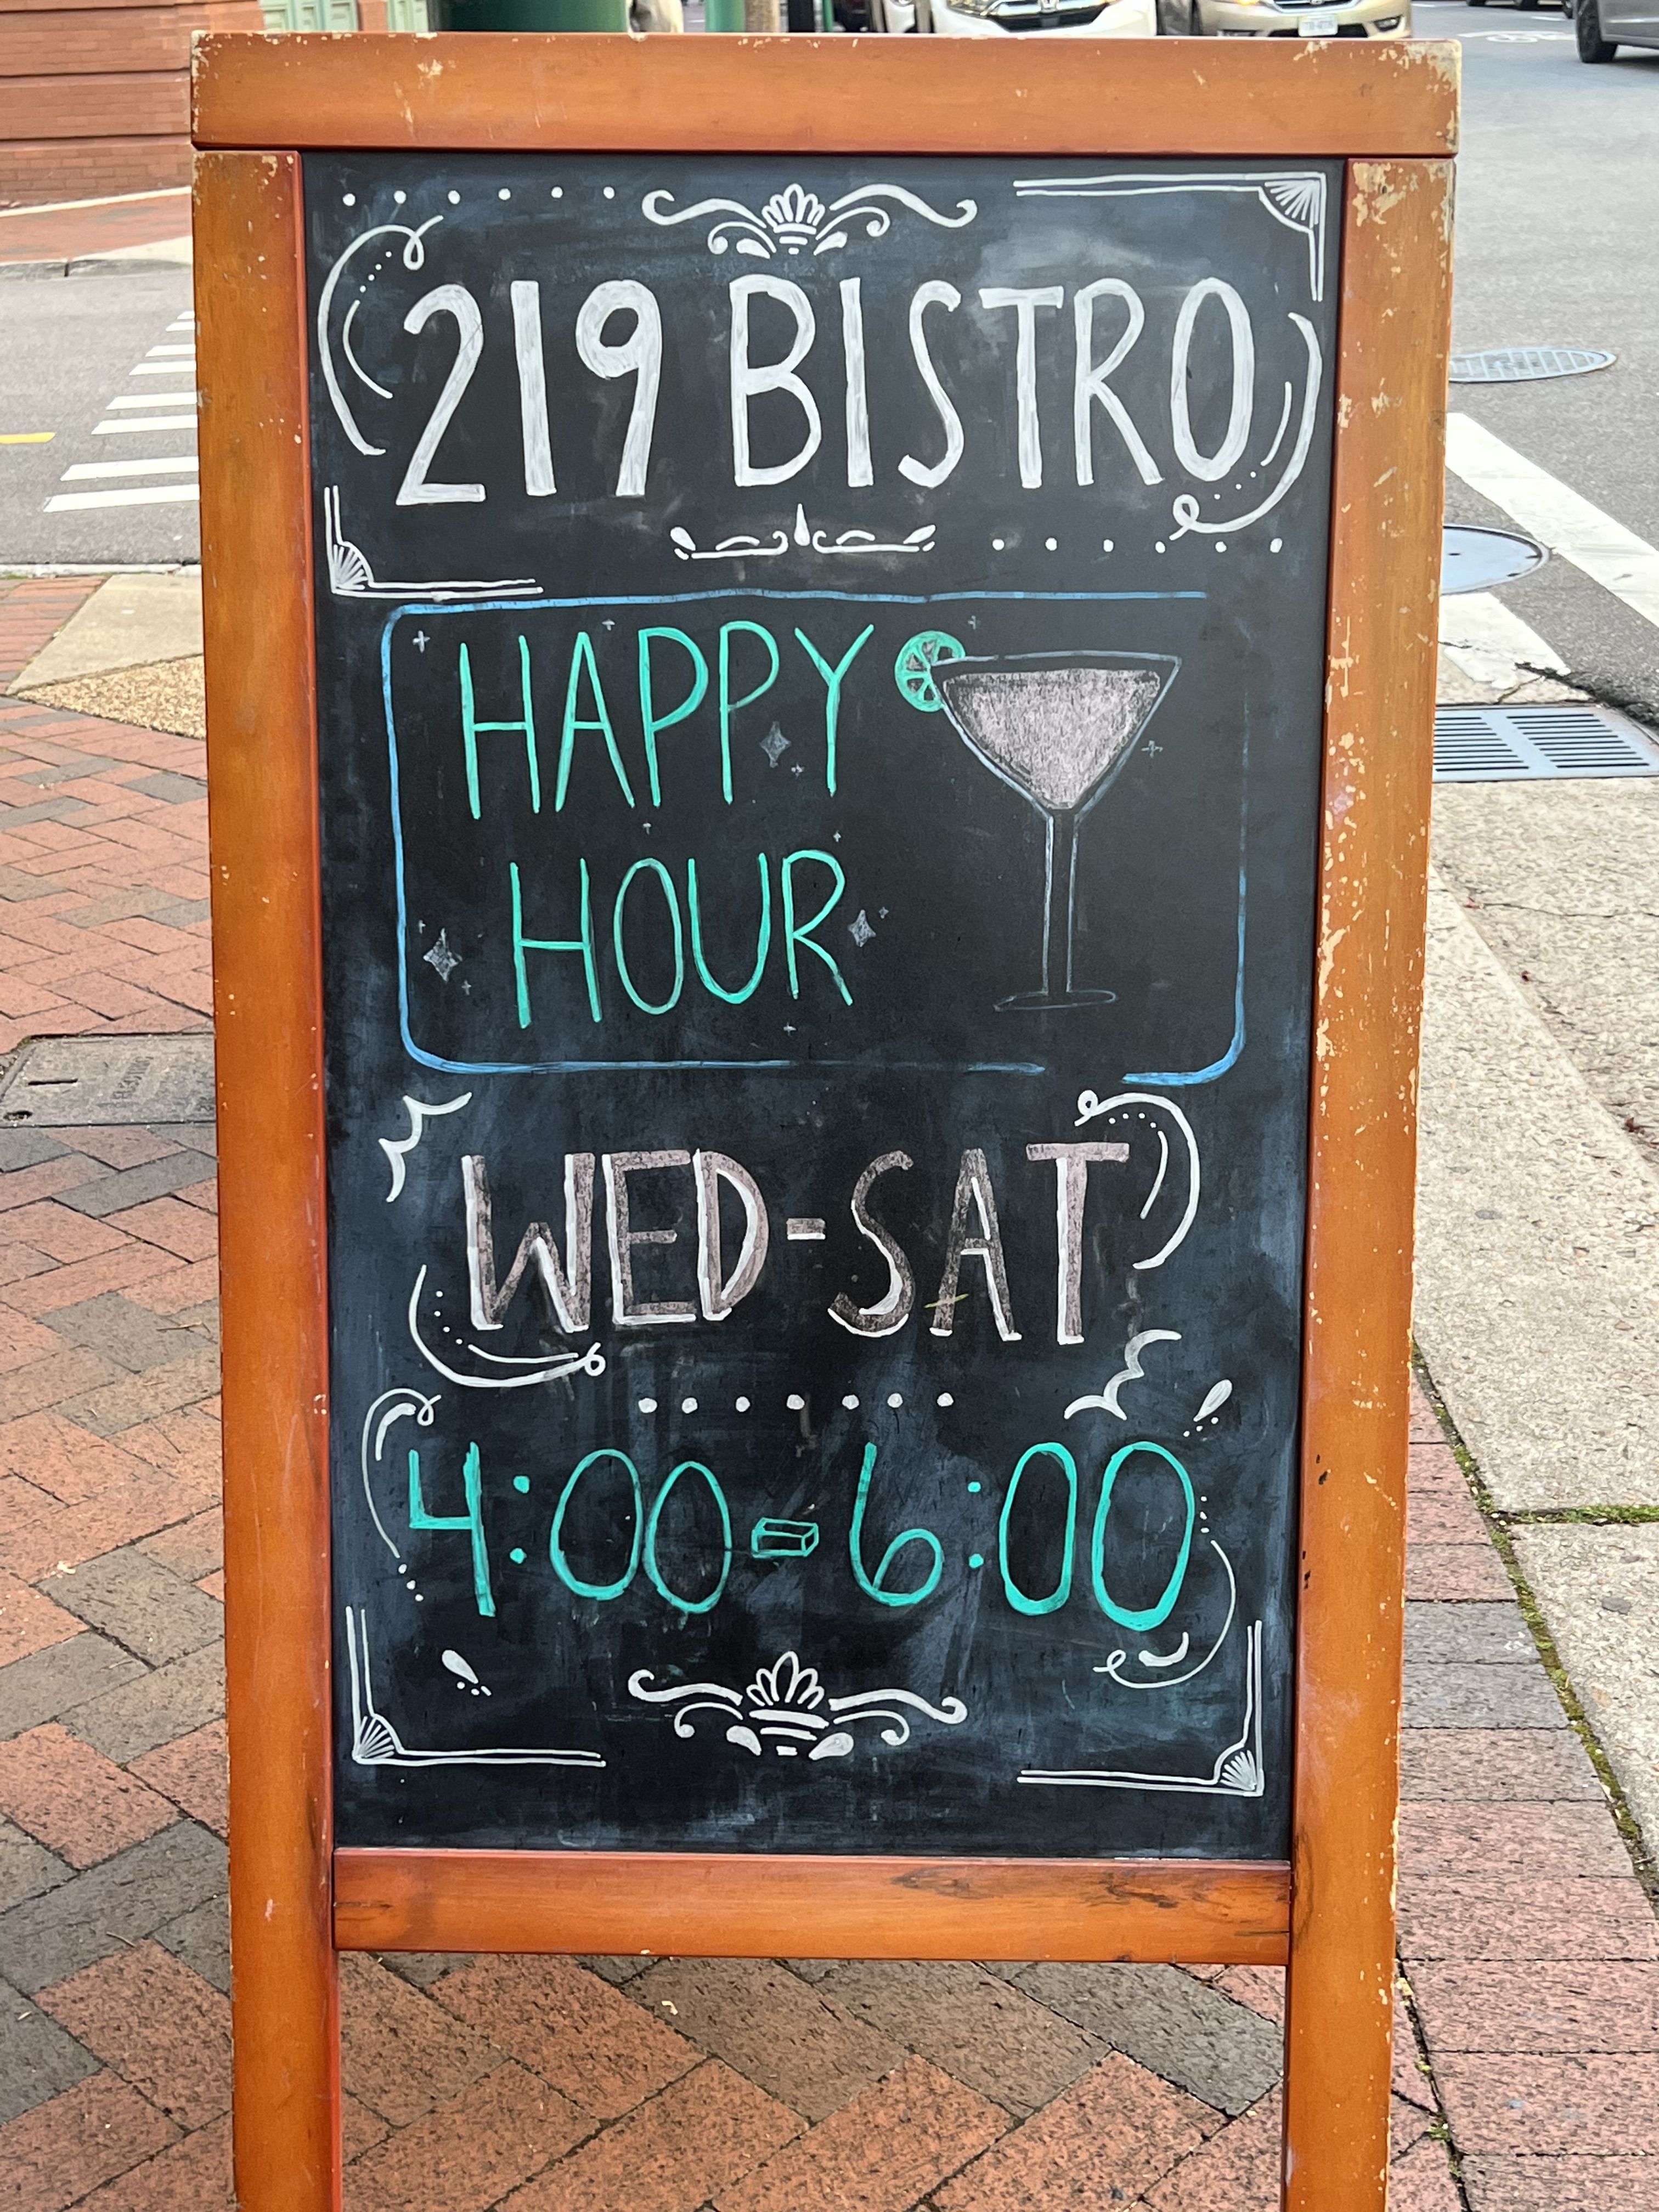 219 BISTRO
HAPPY
HOUR
WED-SAT
4:00-6:00